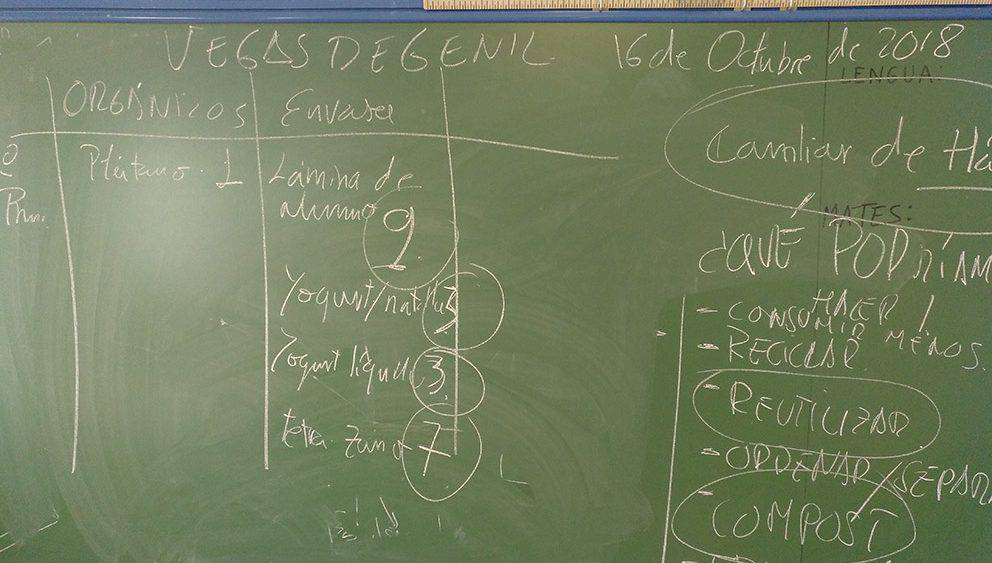 VEGAS DE GENIL 16 de Octubre de 2018
LENGUA:
ORGÁNICOS Envases
Plátano 1
Lámina de
aluminio 2
Yogurt/natilla 3
Yogurt líquido 3
tetra zumo 7
Cambiar de Há
MATES:
¿QUÉ PODRÍAM
HACER?
- CONSUMIR MENOS
- RECICLAR
- REUTILIZAR
- ORDENAR/SEPARA
- COMPOST